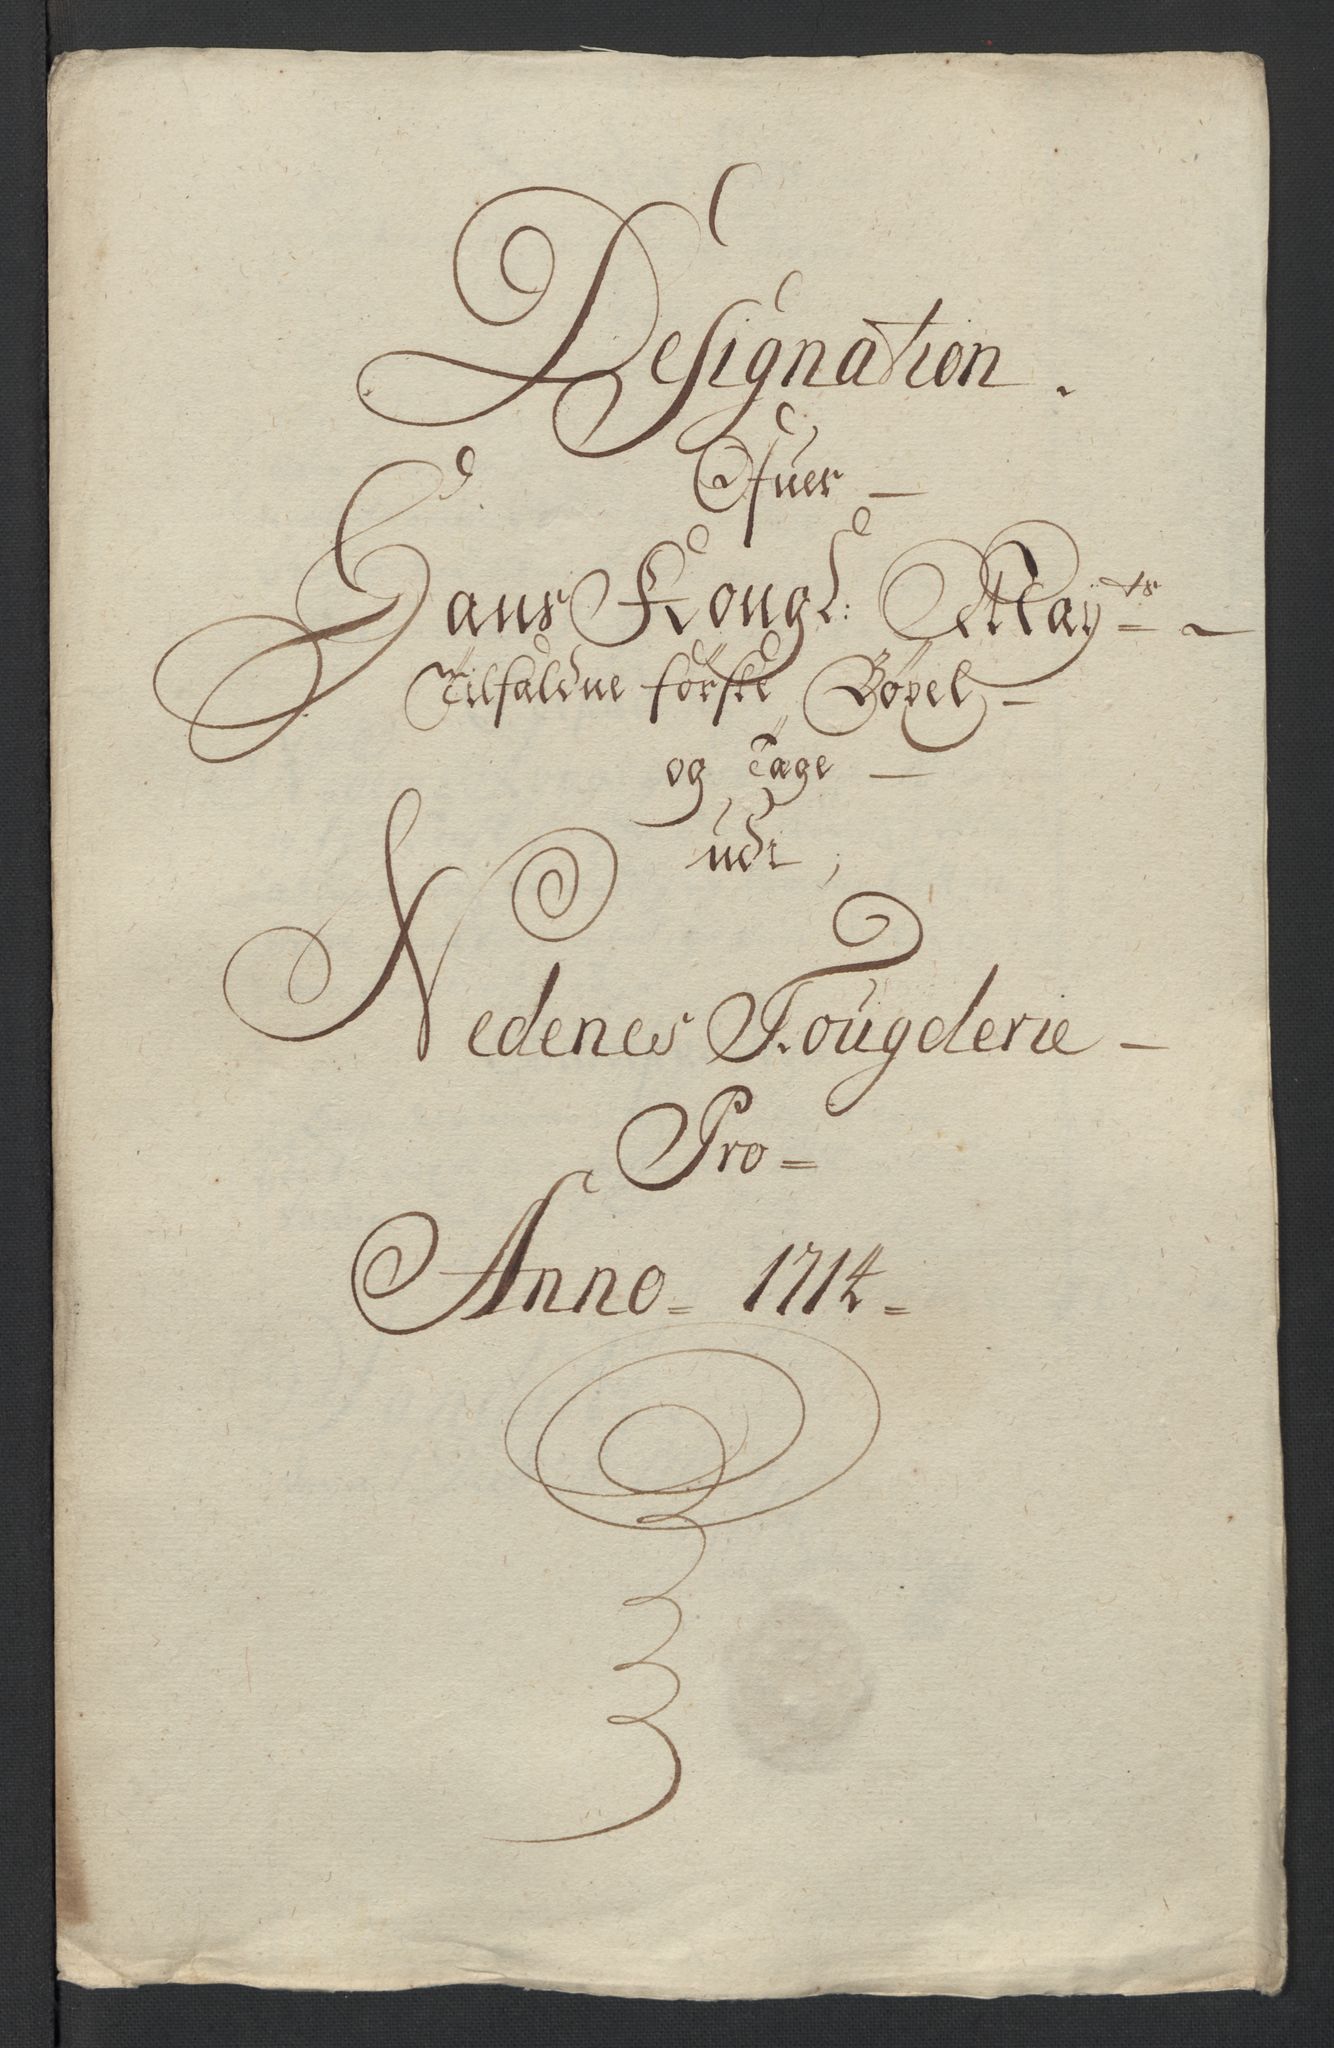 Designation.
Ofuer —
Hans Kongl: Mayts —
Tilfaldne förste Böxel —
og Tage —
udi,
Nedenes Fougderie —
Pro =
Anno = 1714 =